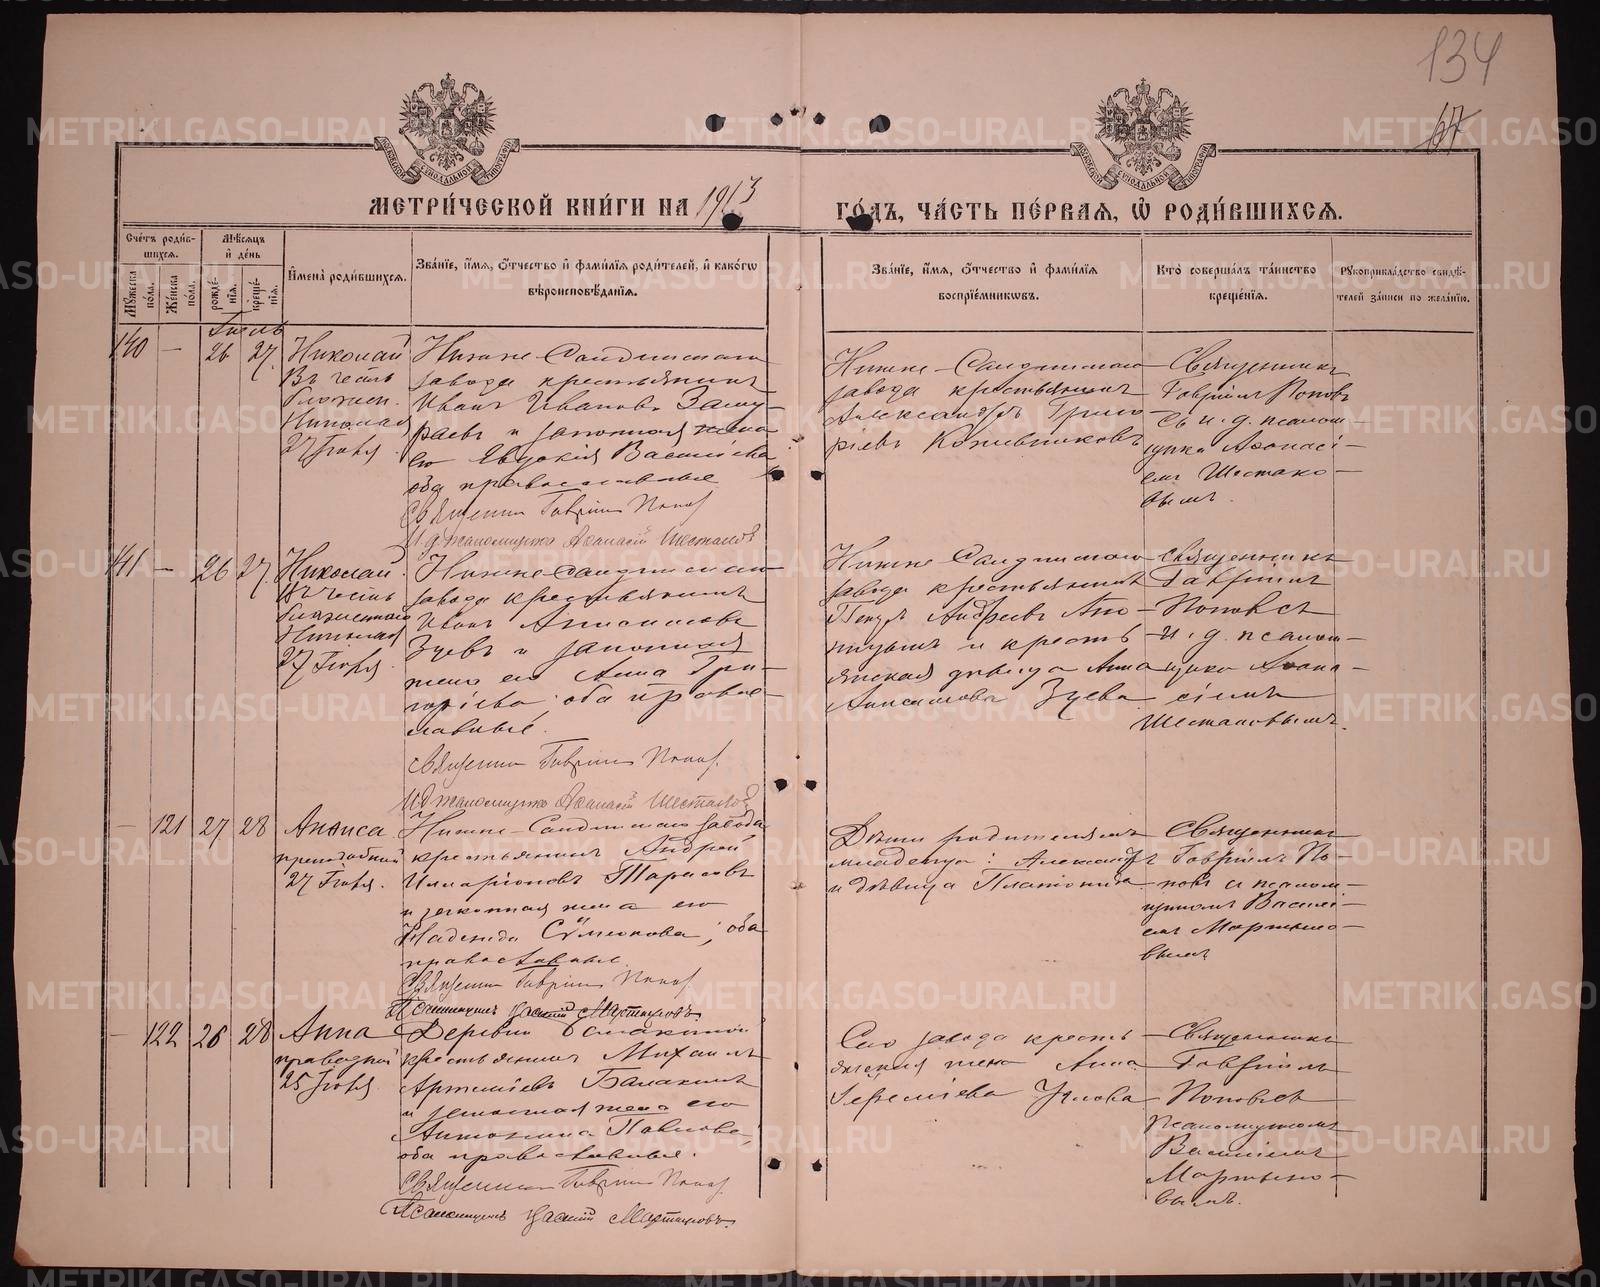 134
67
МЕТРИ́ЧЕСКОЙ КНИ́ГИ НА 1913
ГО́ДЪ, ЧА́СТЬ ПЕ́РВАЯ, Ѡ҆ РОДИ́ВШИХСЯ.
Сче́тъ роди́в-
шихся.
Мꙋжеска по́ла.
Же́нска по́ла.
Мѣ́сяцъ
и҆ де́нь
рожде́-
нїѧ.
креще́-
нїѧ.
И҆мена̀ роди́вшихся.
Зва́нїе, и҆́мя, ѻ҆́тчество и҆ фамѵ́лїя роди́телей, и҆ како́гѡ
вѣроисповѣ́данїя.
Зва́нїе, и҆́мя, ѻ҆́тчество и҆ фамѵ́лїя
воспрїе́мникѡвъ.
Кто̀ соверша́лъ та́инство
креще́нїя.
Рꙋкоприкла́дство свидѣ́-
телей за́писи по жела́нїю.
Іюль
140 — 26 27. Николай
въ честь
Николая
27 Іюля
Нижне-Салдинскаго
завода крестьянинъ
Иванъ Ивановъ Заму-
раевъ и законная жена
его Евдокія Василіева
оба православные
Священникъ Гавріилъ Поповъ
И. д. псаломщика Аѳанасій Шестаковъ
Нижне-Салдинскаго
завода крестьянинъ
Александръ Григо-
ріевъ Кожевниковъ
Священникъ
Гавріилъ Поповъ
съ и. д. псалом-
щика Аѳанасі-
емъ Шестако-
вымъ.
141 — 26 27. Николай
въ честь
Николая
27 Іюля.
Нижне-Салдинскаго
завода крестьянинъ
Иванъ Анисимовъ
Зуевъ и законная
жена его Анна Гри-
горіева; оба право-
славные.
Священникъ Гавріилъ Поповъ
И д псаломщика Аѳанасій Шестаковъ
Нижне Салдинскаго
завода крестьянинъ
Петръ Андреевъ
и кресть-
янская дѣвица Анна
Анисимова Зуева
Священникъ
Гавріилъ
Поповъ съ
и. д. псалом-
щика Аѳана-
сіемъ
Шестаковымъ.
— 121 27 28 Анѳиса
преподобной
27 Іюля.
Нижне-Салдинскаго завода
крестьянинъ Андрей
Иларіоновъ Тарасовъ
и законная жена его
Надежда Сѵмеонова; оба
православные.
Священникъ Гавріилъ Поповъ
Псаломщикъ Василій Мартыновъ.
Дѣти родителямъ
младенца: Александръ
и дѣвица Платонида
Священникъ
Гавріилъ По-
повъ съ псалом-
щикомъ Василі-
емъ Мартыно-
вымъ
— 122 26 28 Анна
праведной
25 Іюля.
Деревни Балакиной
крестьянинъ Михаилъ
Артеміевъ Балакинъ
и законная жена его
Антонина Павлова;
оба православные.
Священникъ Гавріилъ Поповъ
Псаломщикъ Василій Мартыновъ.
Сего завода кресть-
янская жена Анна
Священникъ
Гавріилъ
Поповъ съ
псаломщикомъ
Василіемъ
Мартыно-
вымъ.
METRIKI.GASO-URAL.RU